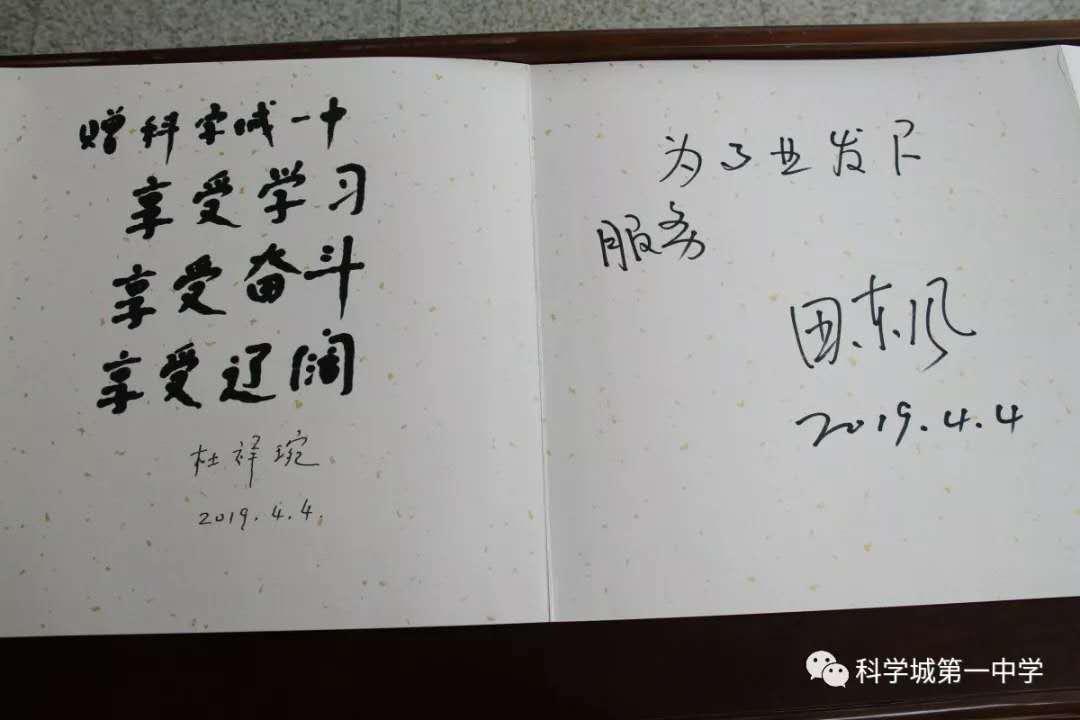 赠科学城一中
享受学习
享受奋斗
享受辽阔
杜祥琬
2019.4.4.
为业发
服务
田东风
2019.4.4
科学城第一中学